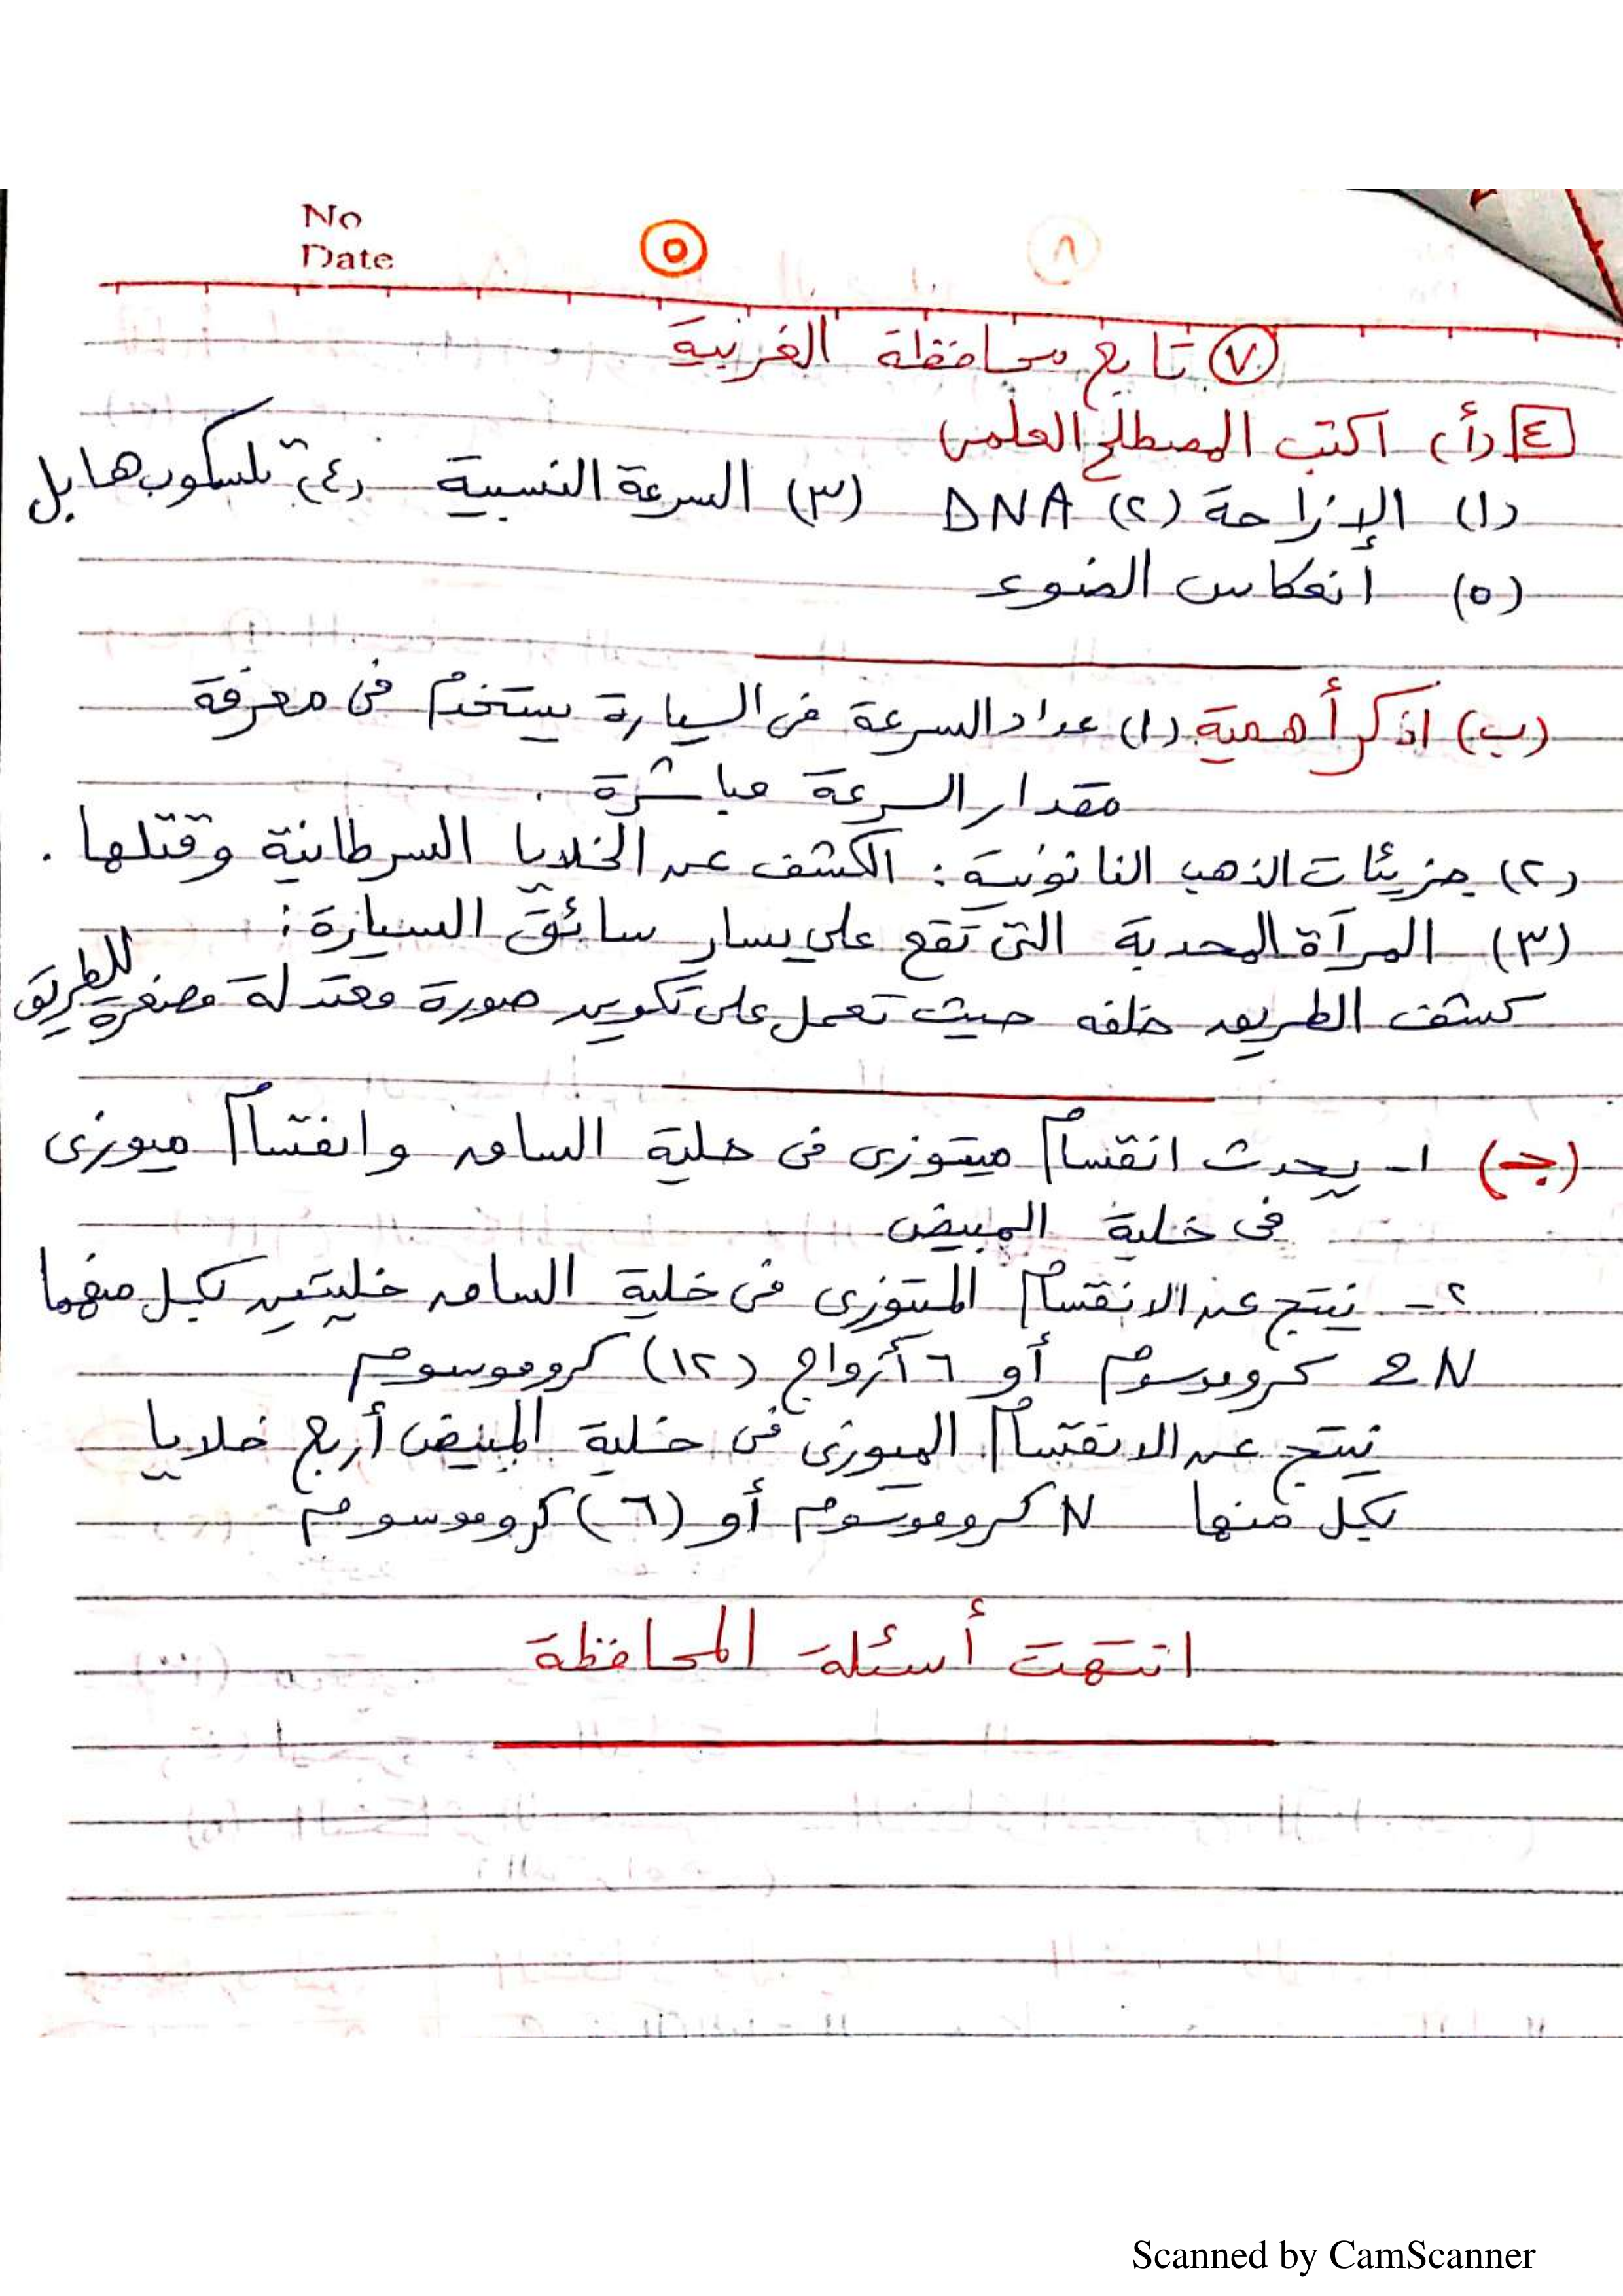 No
Date
٥
٧ تابع محافظة الغربية
٤ (أ) اكتب المصطلح العلمى
(١) الإزاحة (٢) DNA (٣) السرعة النسبية (٤) تلسكوب هابل
(٥) انعكاس الضوء
(ب) اذكر أهمية (١) عداد السرعة فى السيارة يستخدم فى معرفة
مقدار السرعة مباشرة .
(٢) جزيئات الذهب النانونية : الكشف عن الخلايا السرطانية وقتلها .
(٣) المرآة المحدبة التى تقع على يسار سائق السيارة :
كشف الطريق خلفه حيث تعمل على تكوين صورة معتدلة مصغرة للطريق
(جـ) ١- يحدث انقسام ميتوزى فى خلية الساق وانقسام ميوزى
فى خلية المبيض
٢- ينتج عن الانقسام الميتوزى فى خلية الساق خليتين بكل منهما
2N كروموسوم أو ٦ أزواج (١٢) كروموسوم
ينتج عن الانقسام الميوزى فى خلية المبيض أربع خلايا
بكل منها N كروموسوم أو (٦) كروموسوم
انتهت أسئلة المحافظة
Scanned by CamScanner